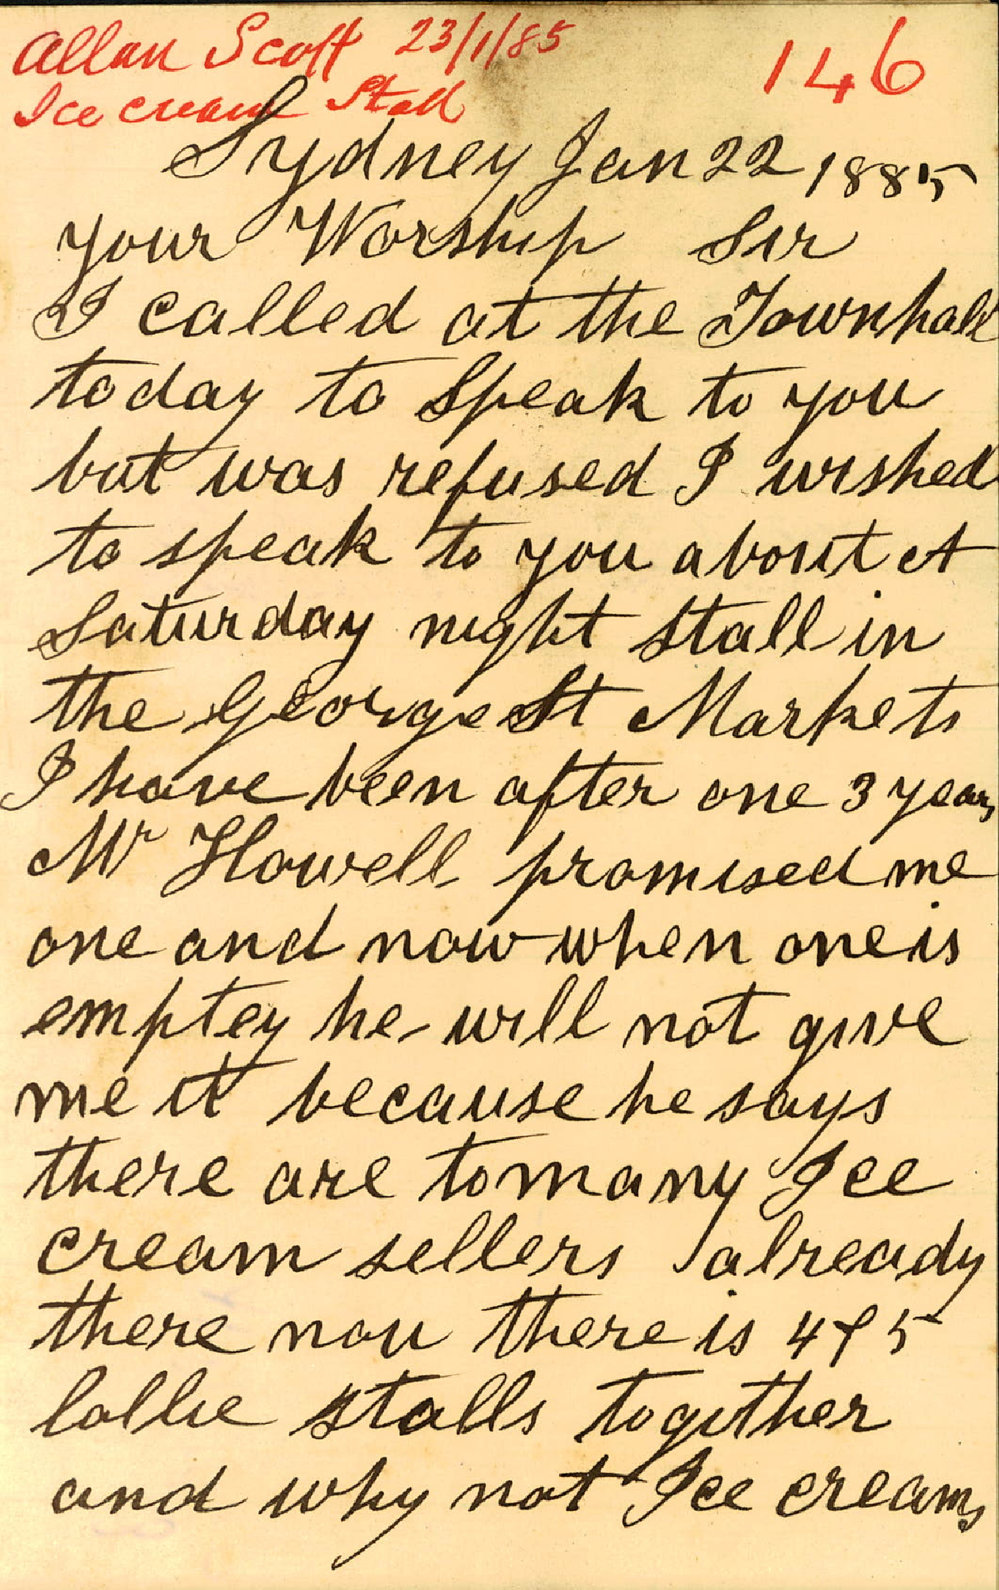 Allan Scott 23/1/85
Ice cream Stall
146
Sydney Jan 22 1885
your Worship Sir
I called at the Townhall
today to Speak to you
but was refused I wished
to speak to you about A
Saturday night Stall in
the George St Markets
I have been after one 3 years
Mr Howell promised me
one and now when one is
emptey he will not give
me it because he says
there are to many Ice
cream sellers already
there nou there is 4 & 5
lollie stalls together
and why not Ice creams